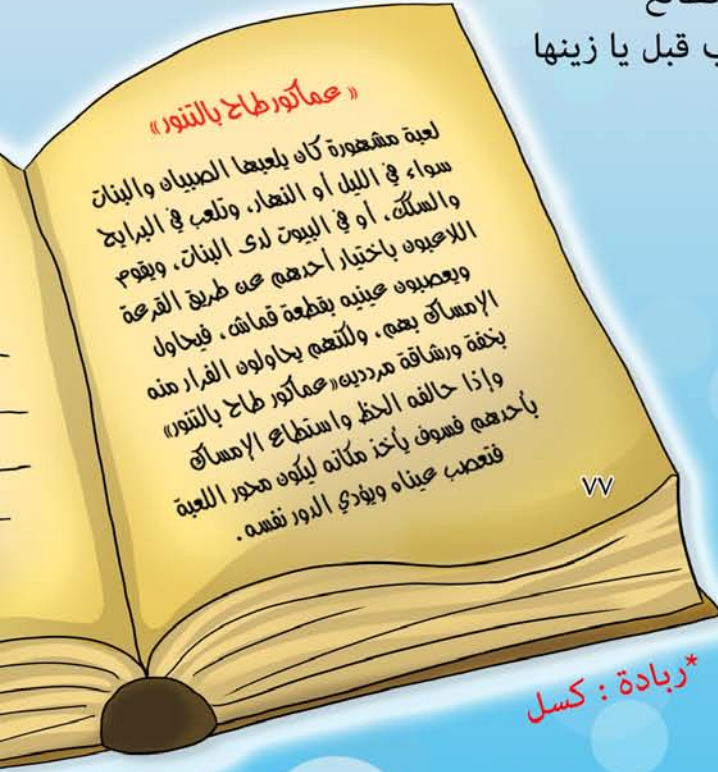 ب قبل يا زينها
« عماكور طاح بالتنور»
لعبة مشهورة كان يلعبها الصبيان والبنات
سواء في الليل أو النهار، وتلعب في البرايح
والسكك، أو في البيوت لدى البنات، ويقوم
اللاعبون باختيار أحدهم عن طريق القرعة
ويعصبون عينيه بقطعة قماش، فيحاول
الإمساك بهم، ولكنهم يحاولون الفرار منه
بخفة ورشاقة مرددين«عماكور طاح بالتنور»
وإذا حالفه الحظ واستطاع الإمساك
بأحدهم فسوف يأخذ مكانه ليكون محور اللعبة
فتعصب عيناه ويؤدي الدور نفسه.
٧٧
*ربادة : كسل